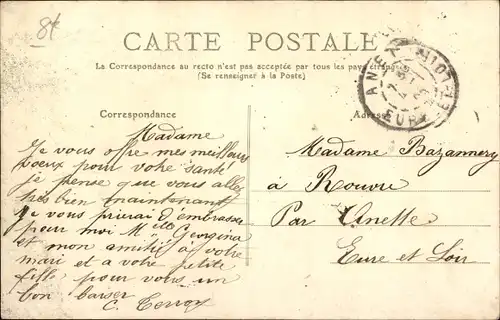 8f
CARTE POSTALE
La Correspondance au recto n'est pas acceptée par tous les pays étrangers
(Se renseigner à la Poste)
Correspondance
Adresse
Madame
Je vous offre mes meilleurs
voeux pour votre santé
je pense que vous allez
très bien maintenant
Je vous prierai d'embrasser
pour moi Mlle Georgina
et mon amitié à votre
mari et a votre petite
fille pour vous un
bon baiser
C.
Madame Bazannery
à Rouvre
Par Anette
Eure et Loir
ANE
EURE